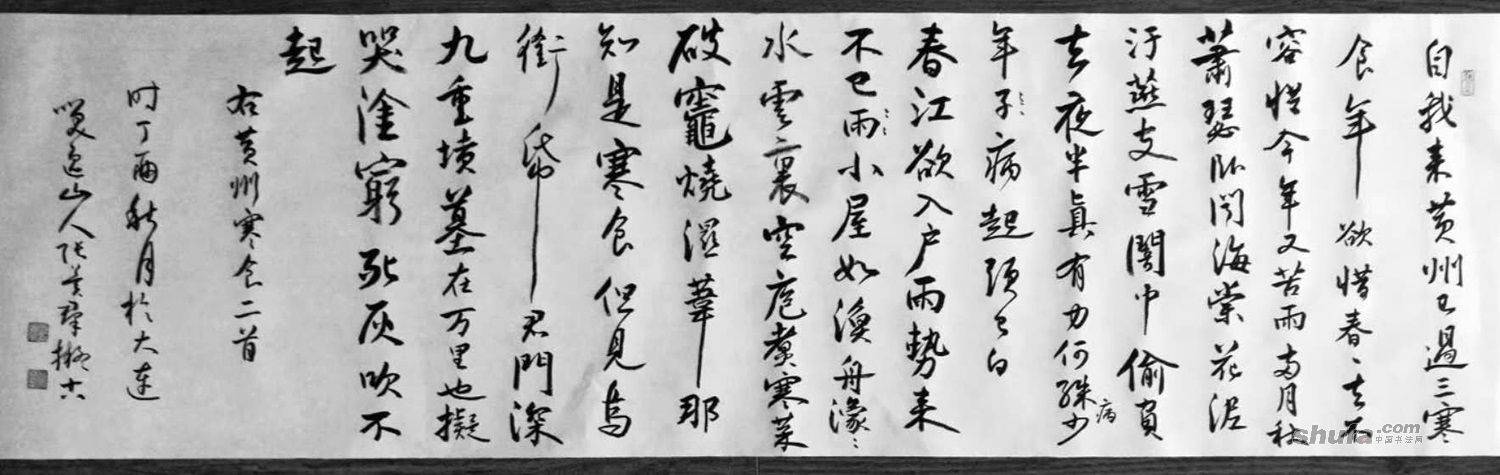 自我来黄州已過三寒
食年年欲惜春春去不
容惜今年又苦雨两月秋
蕭瑟卧聞海棠花泥
汙燕支雪闇中偷負
去夜半真有力何殊少
病
年子病起頭已白
春江欲入户雨勢来
不已雨小屋如漁舟濛濛
水雲裏空庖煮寒菜
破竈燒濕葦那
知是寒食但見烏
銜帋君門深
九重墳墓在万里也擬
哭塗窮死灰吹不
起
右黄州寒食二首
时丁酉秋月於大连
山人
shufa.com
中国书法网